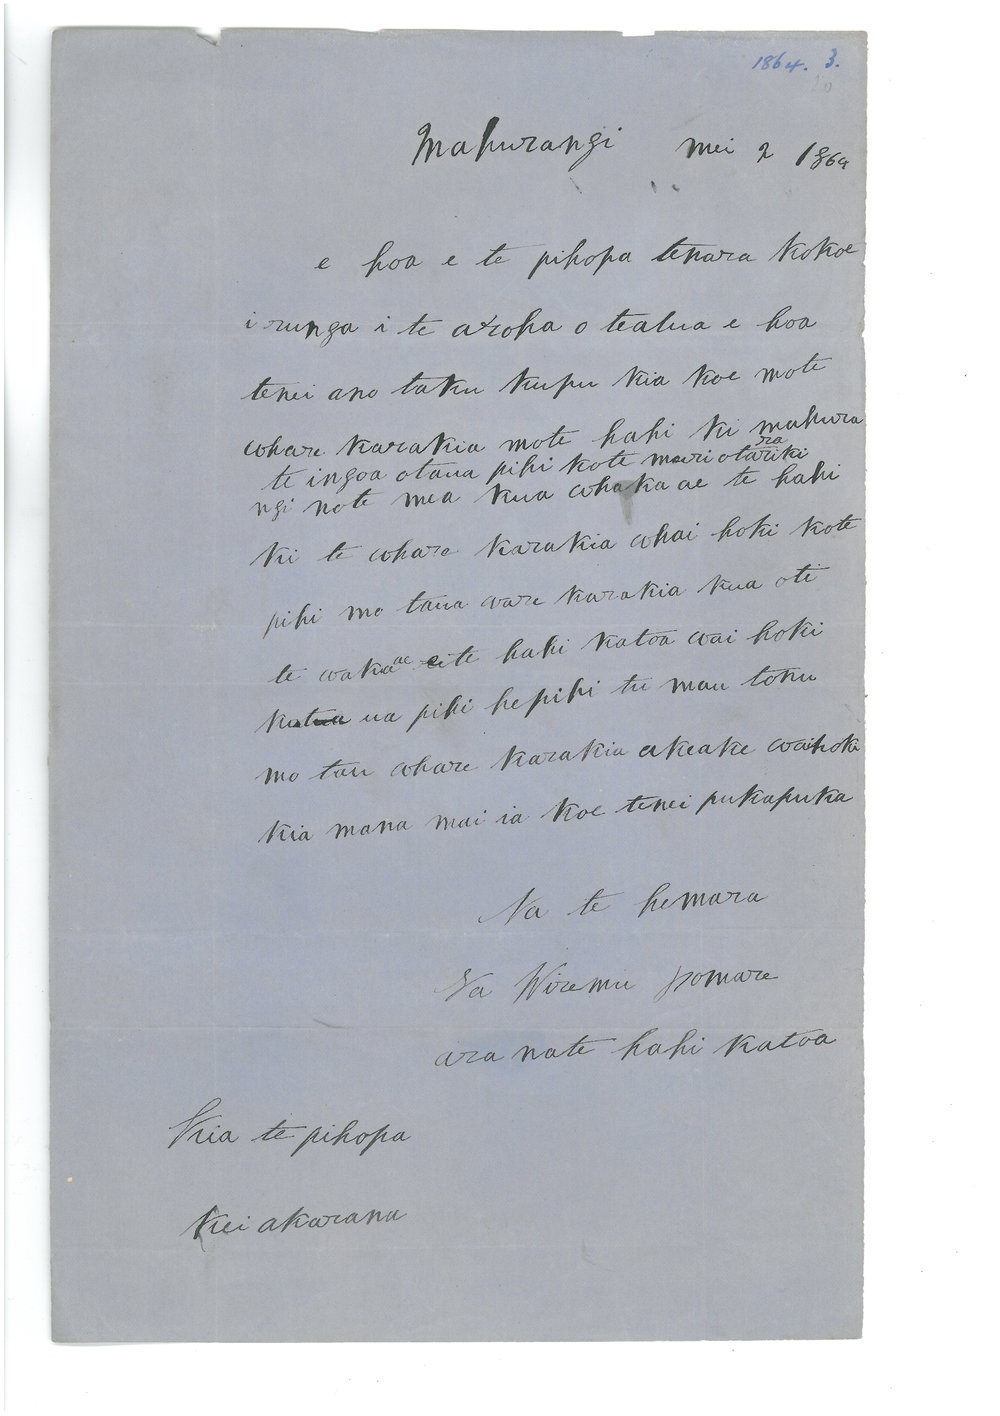 1864. 3.
Mahurangi mei 2 1864
e hoa e te pihopa tenara kokoe
i runga i te aroha o teatua e hoa
tenei ano taku kupu kia koe mote
whare karakia mote hahi ki mahura
ra
te ingoa otaua pihi kote muriotariki
ngi note mea kua whaka ae te hahi
ki te whare karakia whai hoki kote
pihi mo taua ware karakia kua oti
te waka ae eite hahi katoa wai hoki
ua pihi hepihi tu mau tonu
mo tau whare karakia akeake waihoki
kia mana mai ia koe tenei pukapuka
Na te hemara
Na Wiremu pomare
ara nate hahi katoa
Kia te pihopa
kei akarana